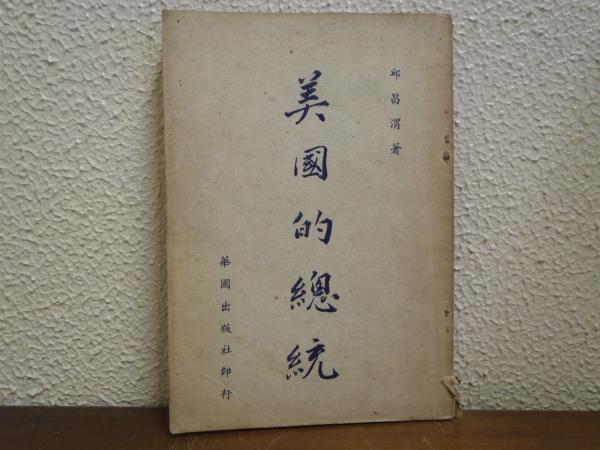 邱昌渭著
美國的總統
華國出版社印行